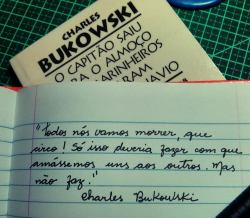 CHARLES
BUKOWSKI
O CAPITÃO SAIU
RA O ALMOÇO
ARINHEIROS
RAM
NAVIO
"Todos nós vamos morrer, que
circo! Só isso deveria fazer com que
amássemos uns aos outros. Mas
não faz."
Charles Bukowski